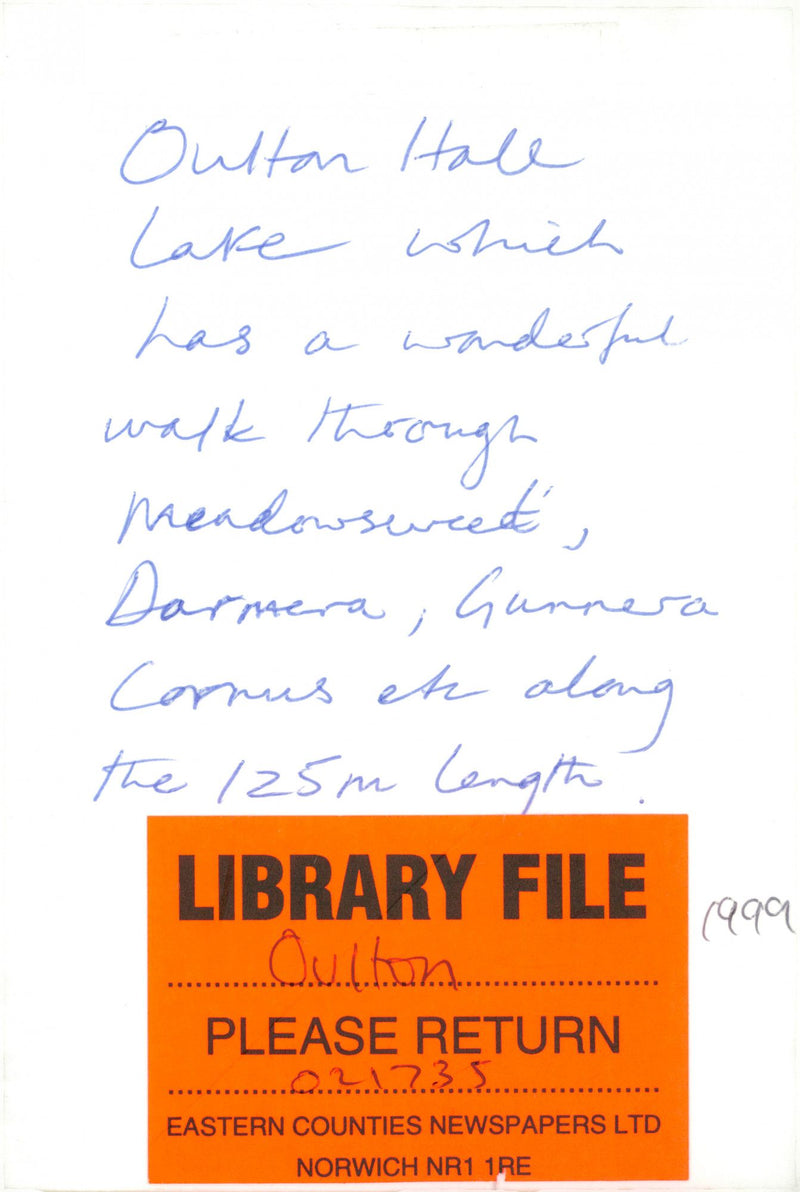 Oulton Hall
Lake which
has a wonderful
walk through
Meadowsweet,
Darmera, Gunnera
Cornus etc along
the 125m length.
LIBRARY FILE
1999
Oulton
PLEASE RETURN
021735
EASTERN COUNTIES NEWSPAPERS LTD
NORWICH NR1 1RE